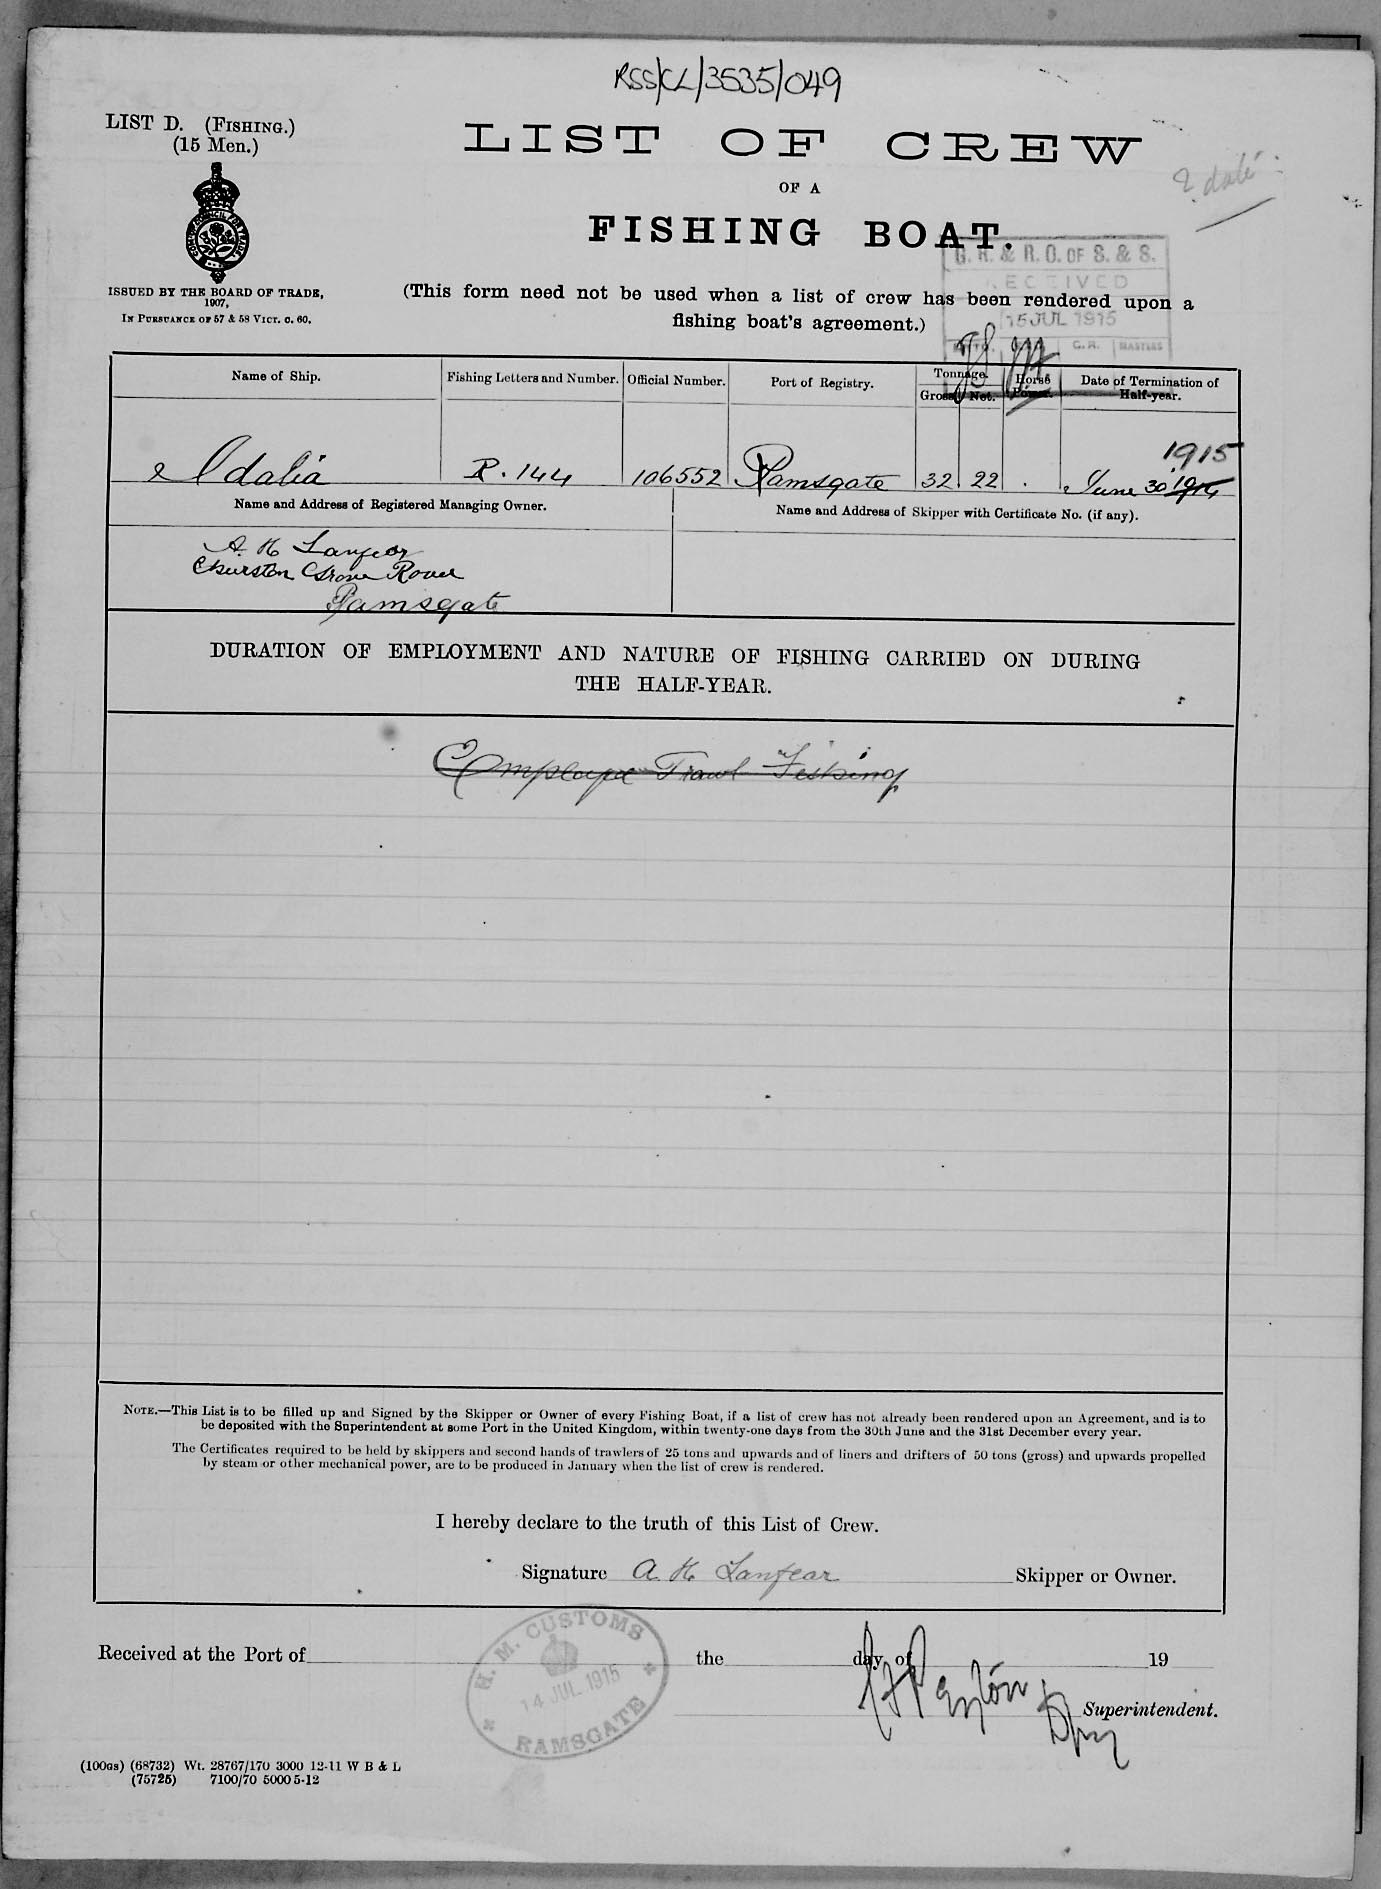 RSS/CL/3535/049
LIST D. (FISHING.)
(15 Men.)
LIST OF CREW
OF A
FISHING BOAT.
ISSUED BY THE BOARD OF TRADE,
1907,
IN PURSUANCE OF 57 & 58 VICT. C. 60.
(This form need not be used when a list of crew has been rendered upon a
fishing boat's agreement.)
G. R. & R. O. OF S. & S.
RECEIVED
15 JUL 1915
C. R. MASTERS
Name of Ship.
Fishing Letters and Number.
Official Number.
Port of Registry.
Tonnage.
Gross
Net.
Horse
Power.
Date of Termination of
Half-year.
Idalia
R. 144
106552
Ramsgate
32
22
1915
June 30 1914
Name and Address of Registered Managing Owner.
Name and Address of Skipper with Certificate No. (if any).
A. H Lanfear
Grove
Ramsgate
DURATION OF EMPLOYMENT AND NATURE OF FISHING CARRIED ON DURING
THE HALF-YEAR.
Trawl Fishing
NOTE.—This List is to be filled up and Signed by the Skipper or Owner of every Fishing Boat, if a list of crew has not already been rendered upon an Agreement, and is to
be deposited with the Superintendent at some Port in the United Kingdom, within twenty-one days from the 30th June and the 31st December every year.
The Certificates required to be held by skippers and second hands of trawlers of 25 tons and upwards and of liners and drifters of 50 tons (gross) and upwards propelled
by steam or other mechanical power, are to be produced in January when the list of crew is rendered.
I hereby declare to the truth of this List of Crew.
Signature A H Lanfear Skipper or Owner.
Received at the Port of the day of 19
H. M. CUSTOMS
14 JUL 1915
RAMSGATE
Superintendent.
(100GS) (68732) Wt. 28767/170 3000 12-11 W B & L
(75725) 7100/70 5000 5-12